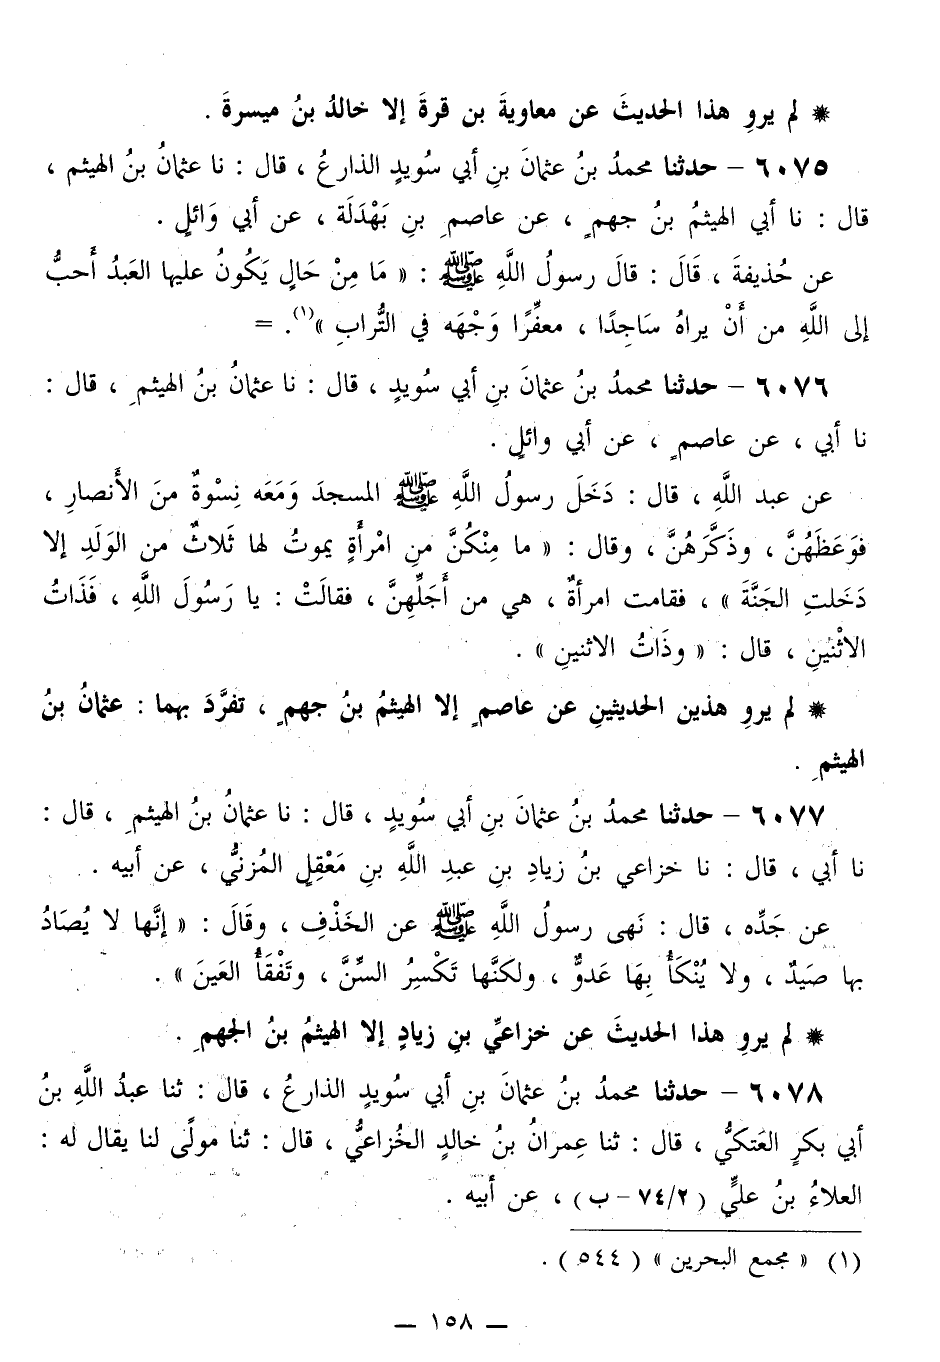 * لم يروِ هذا الحديثَ عن معاويةَ بن قرةَ إلا خالدُ بنُ ميسرةَ .
٦٠٧٥ – حدثنا محمدُ بنُ عثمانَ بنِ أبي سُويدٍ الذارعُ ، قال : نا عثمانُ بنُ الهيثمِ ،
قال : نا أبي الهيثمُ بنُ جهمٍ ، عن عاصمِ بنِ بَهْدَلَة ، عن أبي وَائلٍ .
عن حُذيفةَ ، قَالَ : قالَ رسولُ اللَّهِ ﷺ : « مَا مِنْ حَالٍ يَكُونُ عليها العَبدُ أَحبُّ
إلى اللَّهِ من أَنْ يراهُ سَاجِدًا ، معفِّرًا وَجْهَه في التُّرابِ »(١). =
٦٠٧٦ – حدثنا محمدُ بنُ عثمانَ بنِ أبي سُويدٍ ، قال : نا عثمانُ بنُ الهيثمِ ، قال :
نا أبي ، عن عاصمٍ ، عن أبي وائلٍ .
عن عبد اللَّهِ ، قال : دَخَلَ رسولُ اللَّهِ ﷺ المسجدَ وَمَعَه نِسْوةٌ منَ الأَنصارِ ،
فوَعَظَهُنَّ ، وذَكَّرَهُنَّ ، وقال : « ما مِنْكُنَّ منِ امْرأَةٍ يموتُ لها ثَلاثٌ من الوَلَدِ إلا
دَخَلتِ الجَنَّةَ » ، فقامت امرأةٌ ، هي من أَجَلِّهِنَّ ، فقالَتْ : يا رَسُولَ اللَّهِ ، فَذَاتُ
الاثْنَينِ ، قال : « وذَاتُ الاثنينِ » .
* لم يروِ هذين الحديثينِ عن عاصمٍ إلا الهيثمُ بنُ جهمٍ ، تفرَّدَ بهما : عثمانُ بنُ
الهيثمِ .
٦٠٧٧ – حدثنا محمدُ بنُ عثمانَ بنِ أبي سُويدٍ ، قال : نا عثمانُ بنُ الهيثمِ ، قال :
نا أبي ، قال : نا خزاعي بنُ زيادِ بنِ عبدِ اللَّهِ بنِ مَعْقِلٍ المُزنيُّ ، عن أبيه .
عن جَدِّه ، قال : نَهى رسولُ اللَّهِ ﷺ عن الخَذْفِ ، وقَالَ : « إنَّها لا يُصَادُ
بها صَيدٌ ، ولا يُنْكَأُ بِهَا عَدوٌّ ، ولكنَّها تَكْسِرُ السِّنَّ ، وتَفْقَأُ العَينَ » .
* لم يروِ هذا الحديثَ عن خزاعيِّ بنِ زيادٍ إلا الهيثمُ بنُ الجهمِ .
٦٠٧٨ – حدثنا محمدُ بنُ عثمانَ بنِ أبي سُويدٍ الذارعُ ، قال : ثنا عبدُ اللَّهِ بنُ
أبي بكرٍ العَتكيُّ ، قال : ثنا عِمرانُ بنُ خالدٍ الخُزاعيُّ ، قال : ثنا مولًى لنا يقال له :
العلاءُ بنُ عليٍّ ( ٢/ ٧٤ – ب ) ، عن أبيه .
(١) « مجمع البحرين » ( ٥٤٤ ) .
— ١٥٨ —